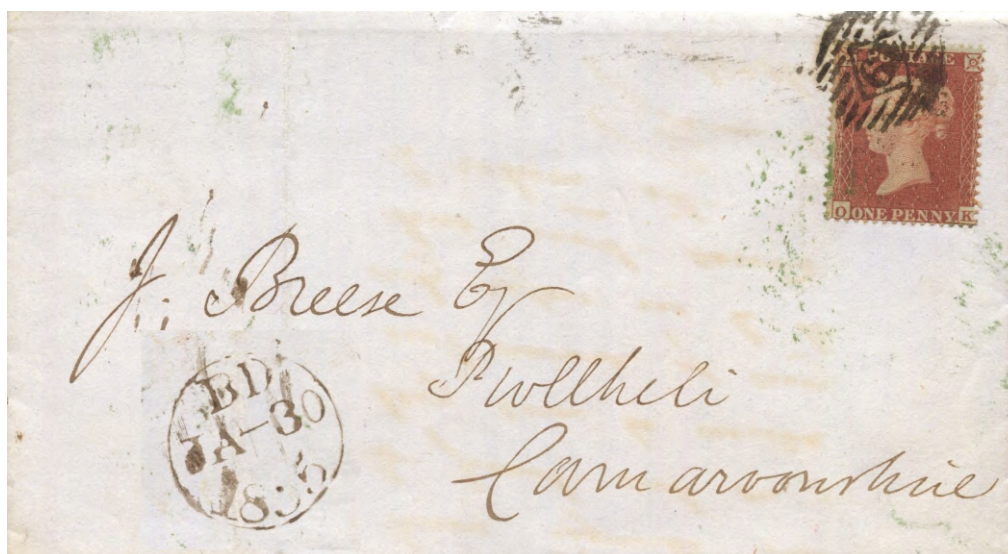 POSTAGE
O ONE PENNY K
J. Breese Esq
Pwllheli
Carnarvonshire
BD
JA-30
1855